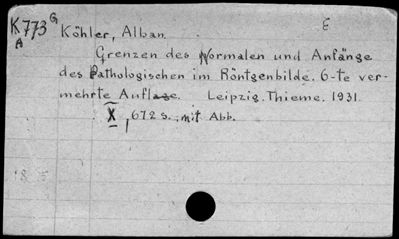 K773 G E
A Köhler, Alban.
Grenzen des Normalen und Anfänge
des Pathologischen im Röntgenbilde. 6-te ver-
mehrte Auflage. Leipzig. Thieme. 1931.
X, 672 S. mit Abb.